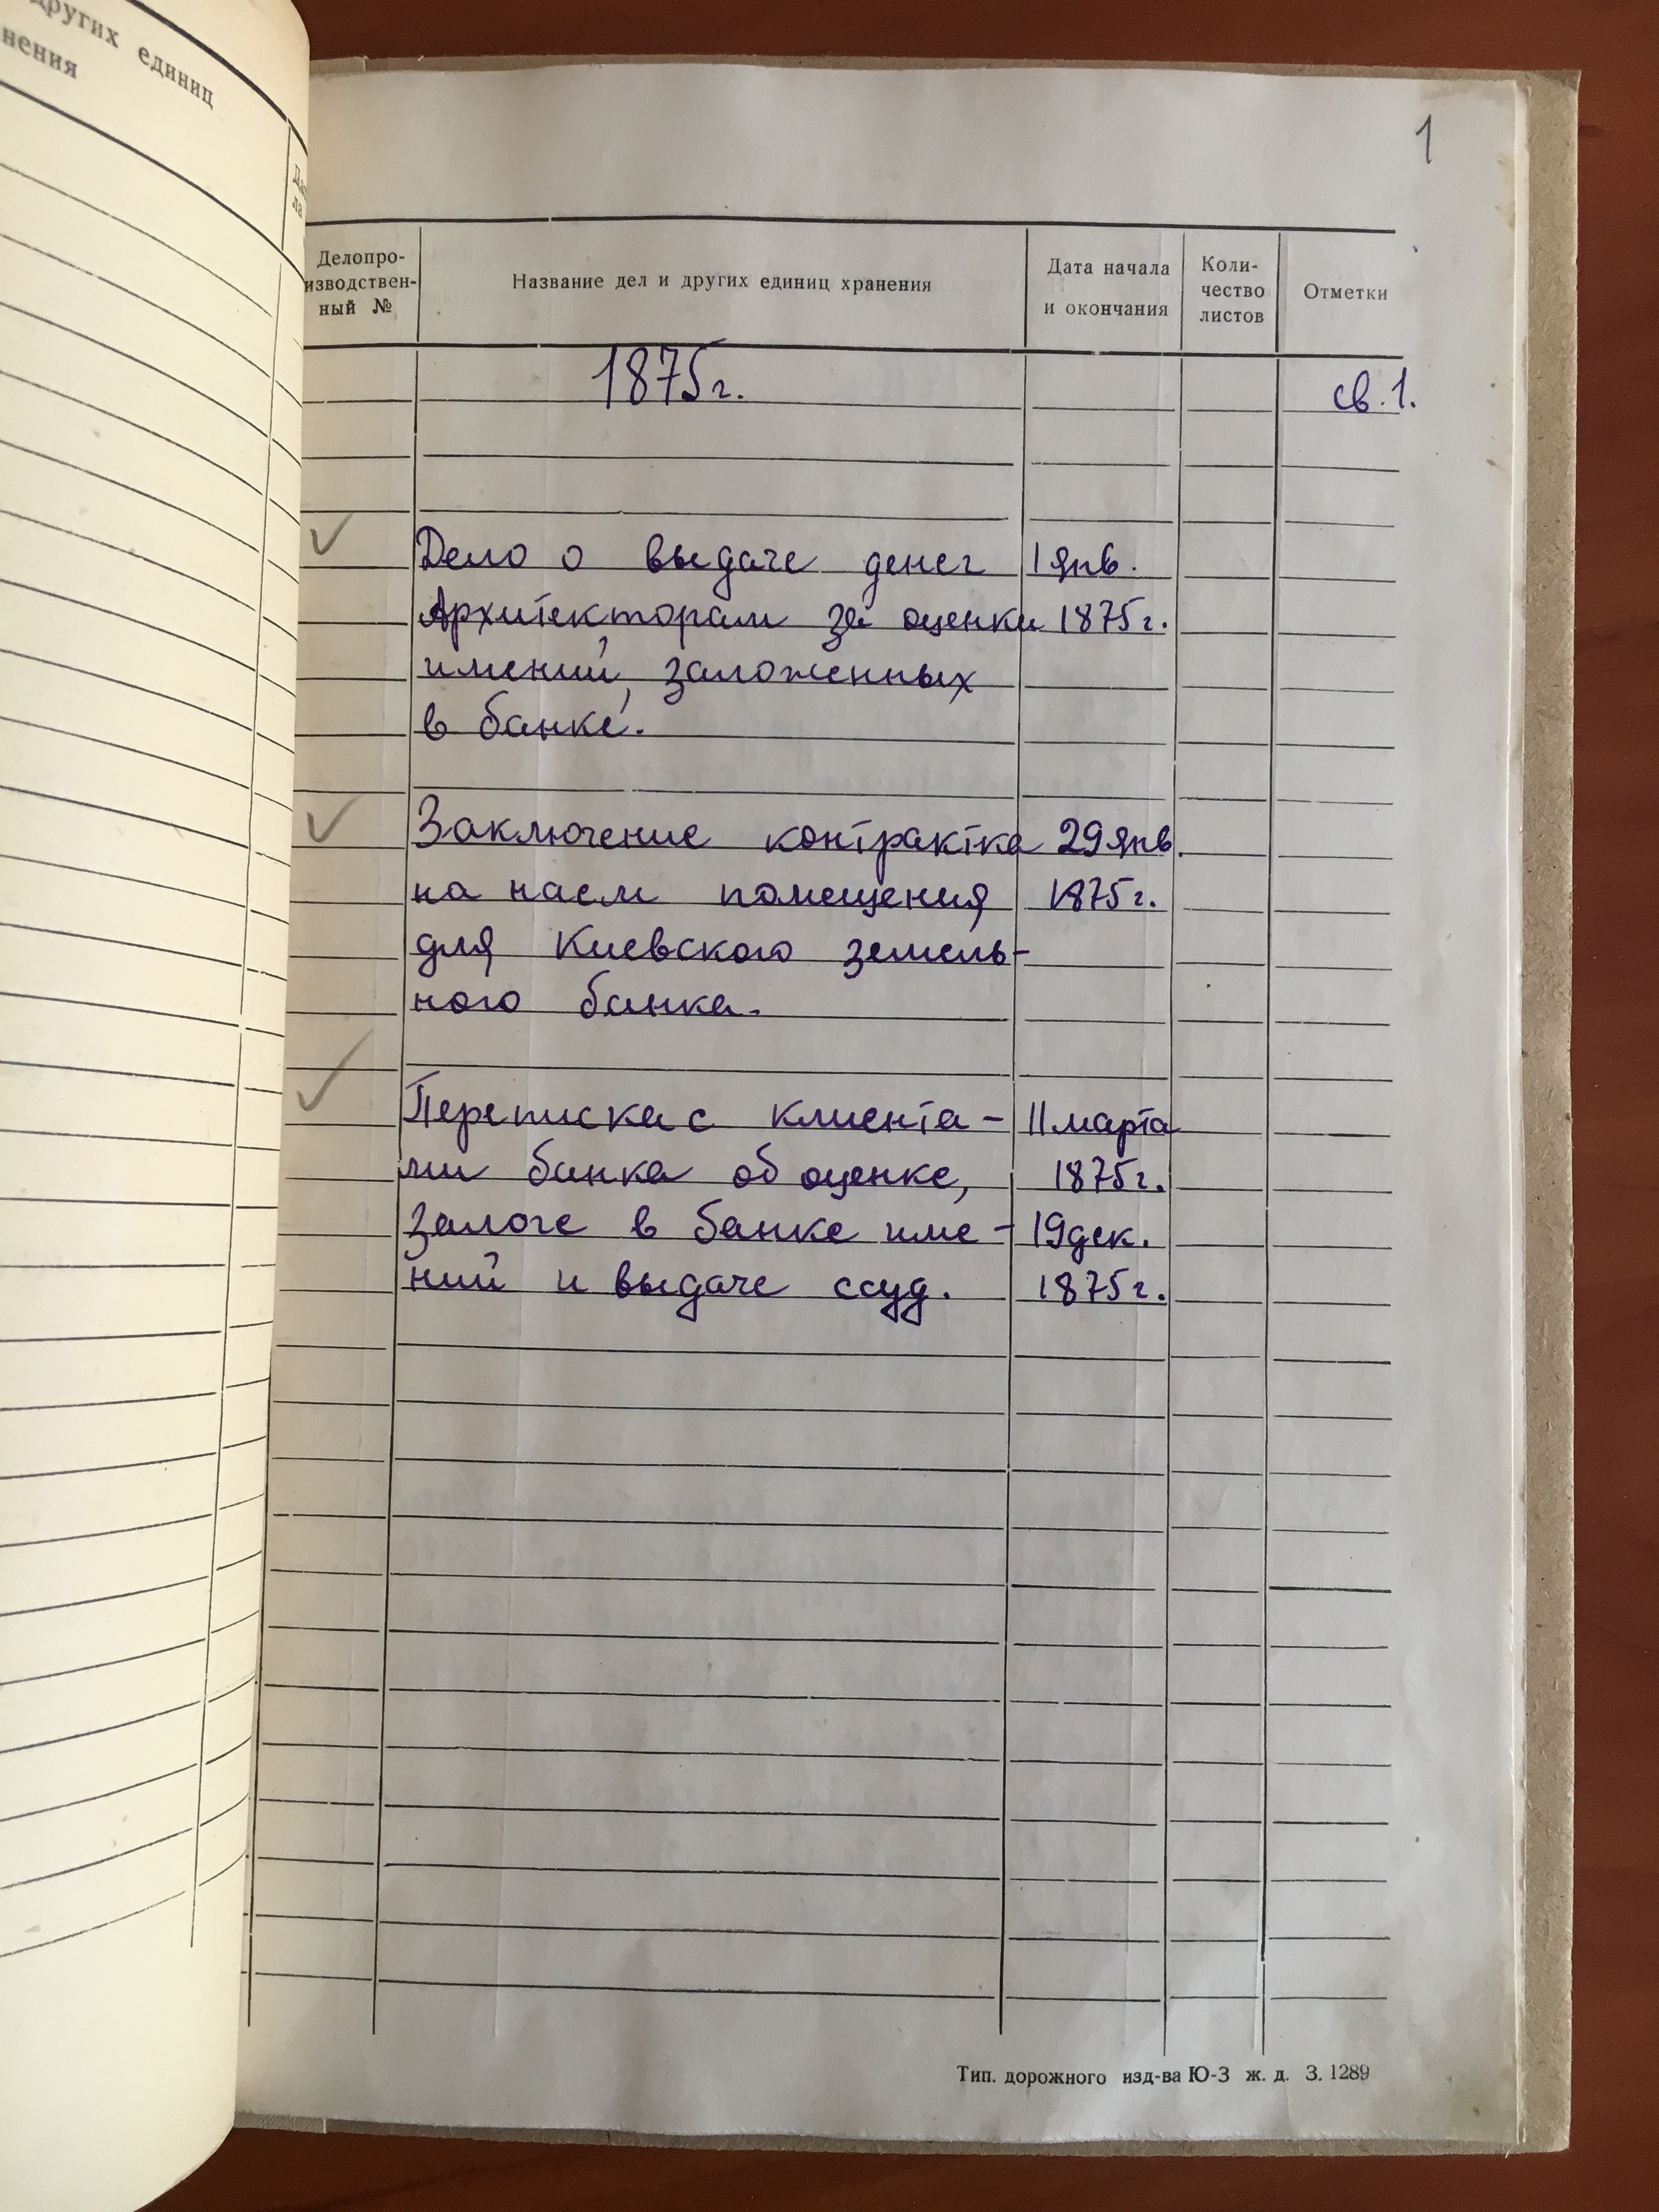 других единиц
нения
1
Делопро-
изводствен-
ный №
Название дел и других единиц хранения
Дата начала
и окончания
Коли-
чество
листов
Отметки
1875г.
св. 1.
Дело о выдаче денег 1 янв.
Архитекторам за оценки 1875г.
имений, заложенных
в банке.
Заключение контракта 29 янв.
на наем помещения 1875г.
для Киевского земель-
ного банка.
Переписка с клиента- 11 марта
ми банка об оценке, 1875г.
залоге в банке име- 19 дек.
ний и выдаче ссуд. 1875г.
Тип. дорожного изд-ва Ю-З ж. д. З. 1289